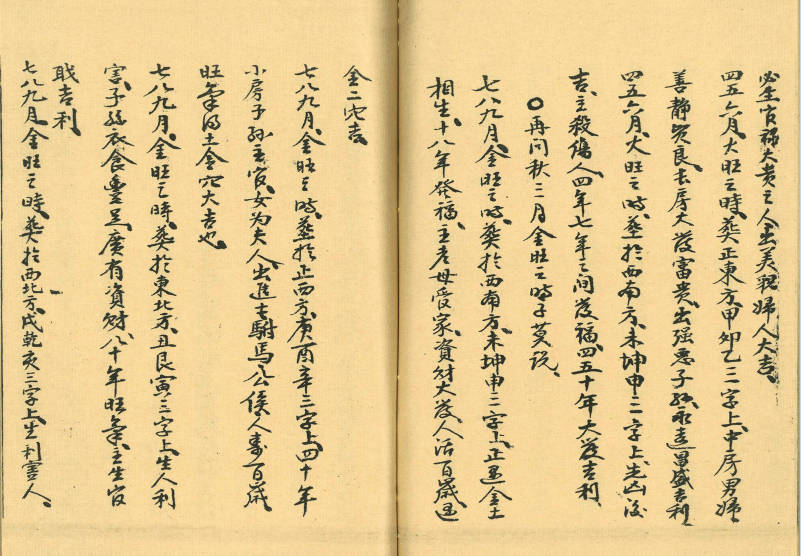 必生官禄大贵之人出美视妇人大吉
四五六月大旺之時葬正東方甲卯乙三字上中房男婦
善静贤良长房大发富贵出强悪子孙永远昌盛吉利
四五六月火旺之時葬於西南方未坤申三字上先凶後
吉主殺傷人四年七年之间发福四五十年大发吉利
○再问秋三月金旺之時子莫説
七八九月金旺之時葬於西南方未坤申三字上正遇金土
相生十八年發福主老母受家資财大发人活百歲遇
金二它吉
七八九月金旺之時葬於正西方庚酉辛三字上四十年
小房子孙主官女为夫人出進士駙馬公侯人寿百歲
旺氣得土金穴大吉也
七八九月金旺之時葬於東北方丑艮寅三字上生人利
害子孙衣食豐足廣有資财八十年旺氣主生官
戝吉利
七八九月金旺之時葬於西北方戍乾亥三字上生利害人